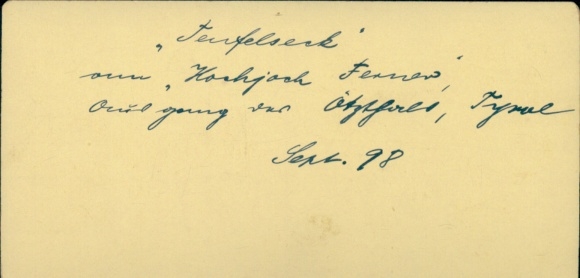 „Teufelseck"
am „Hochjoch Ferner",
Ausgang des Ötzthals, Tyrol
Sept. 98